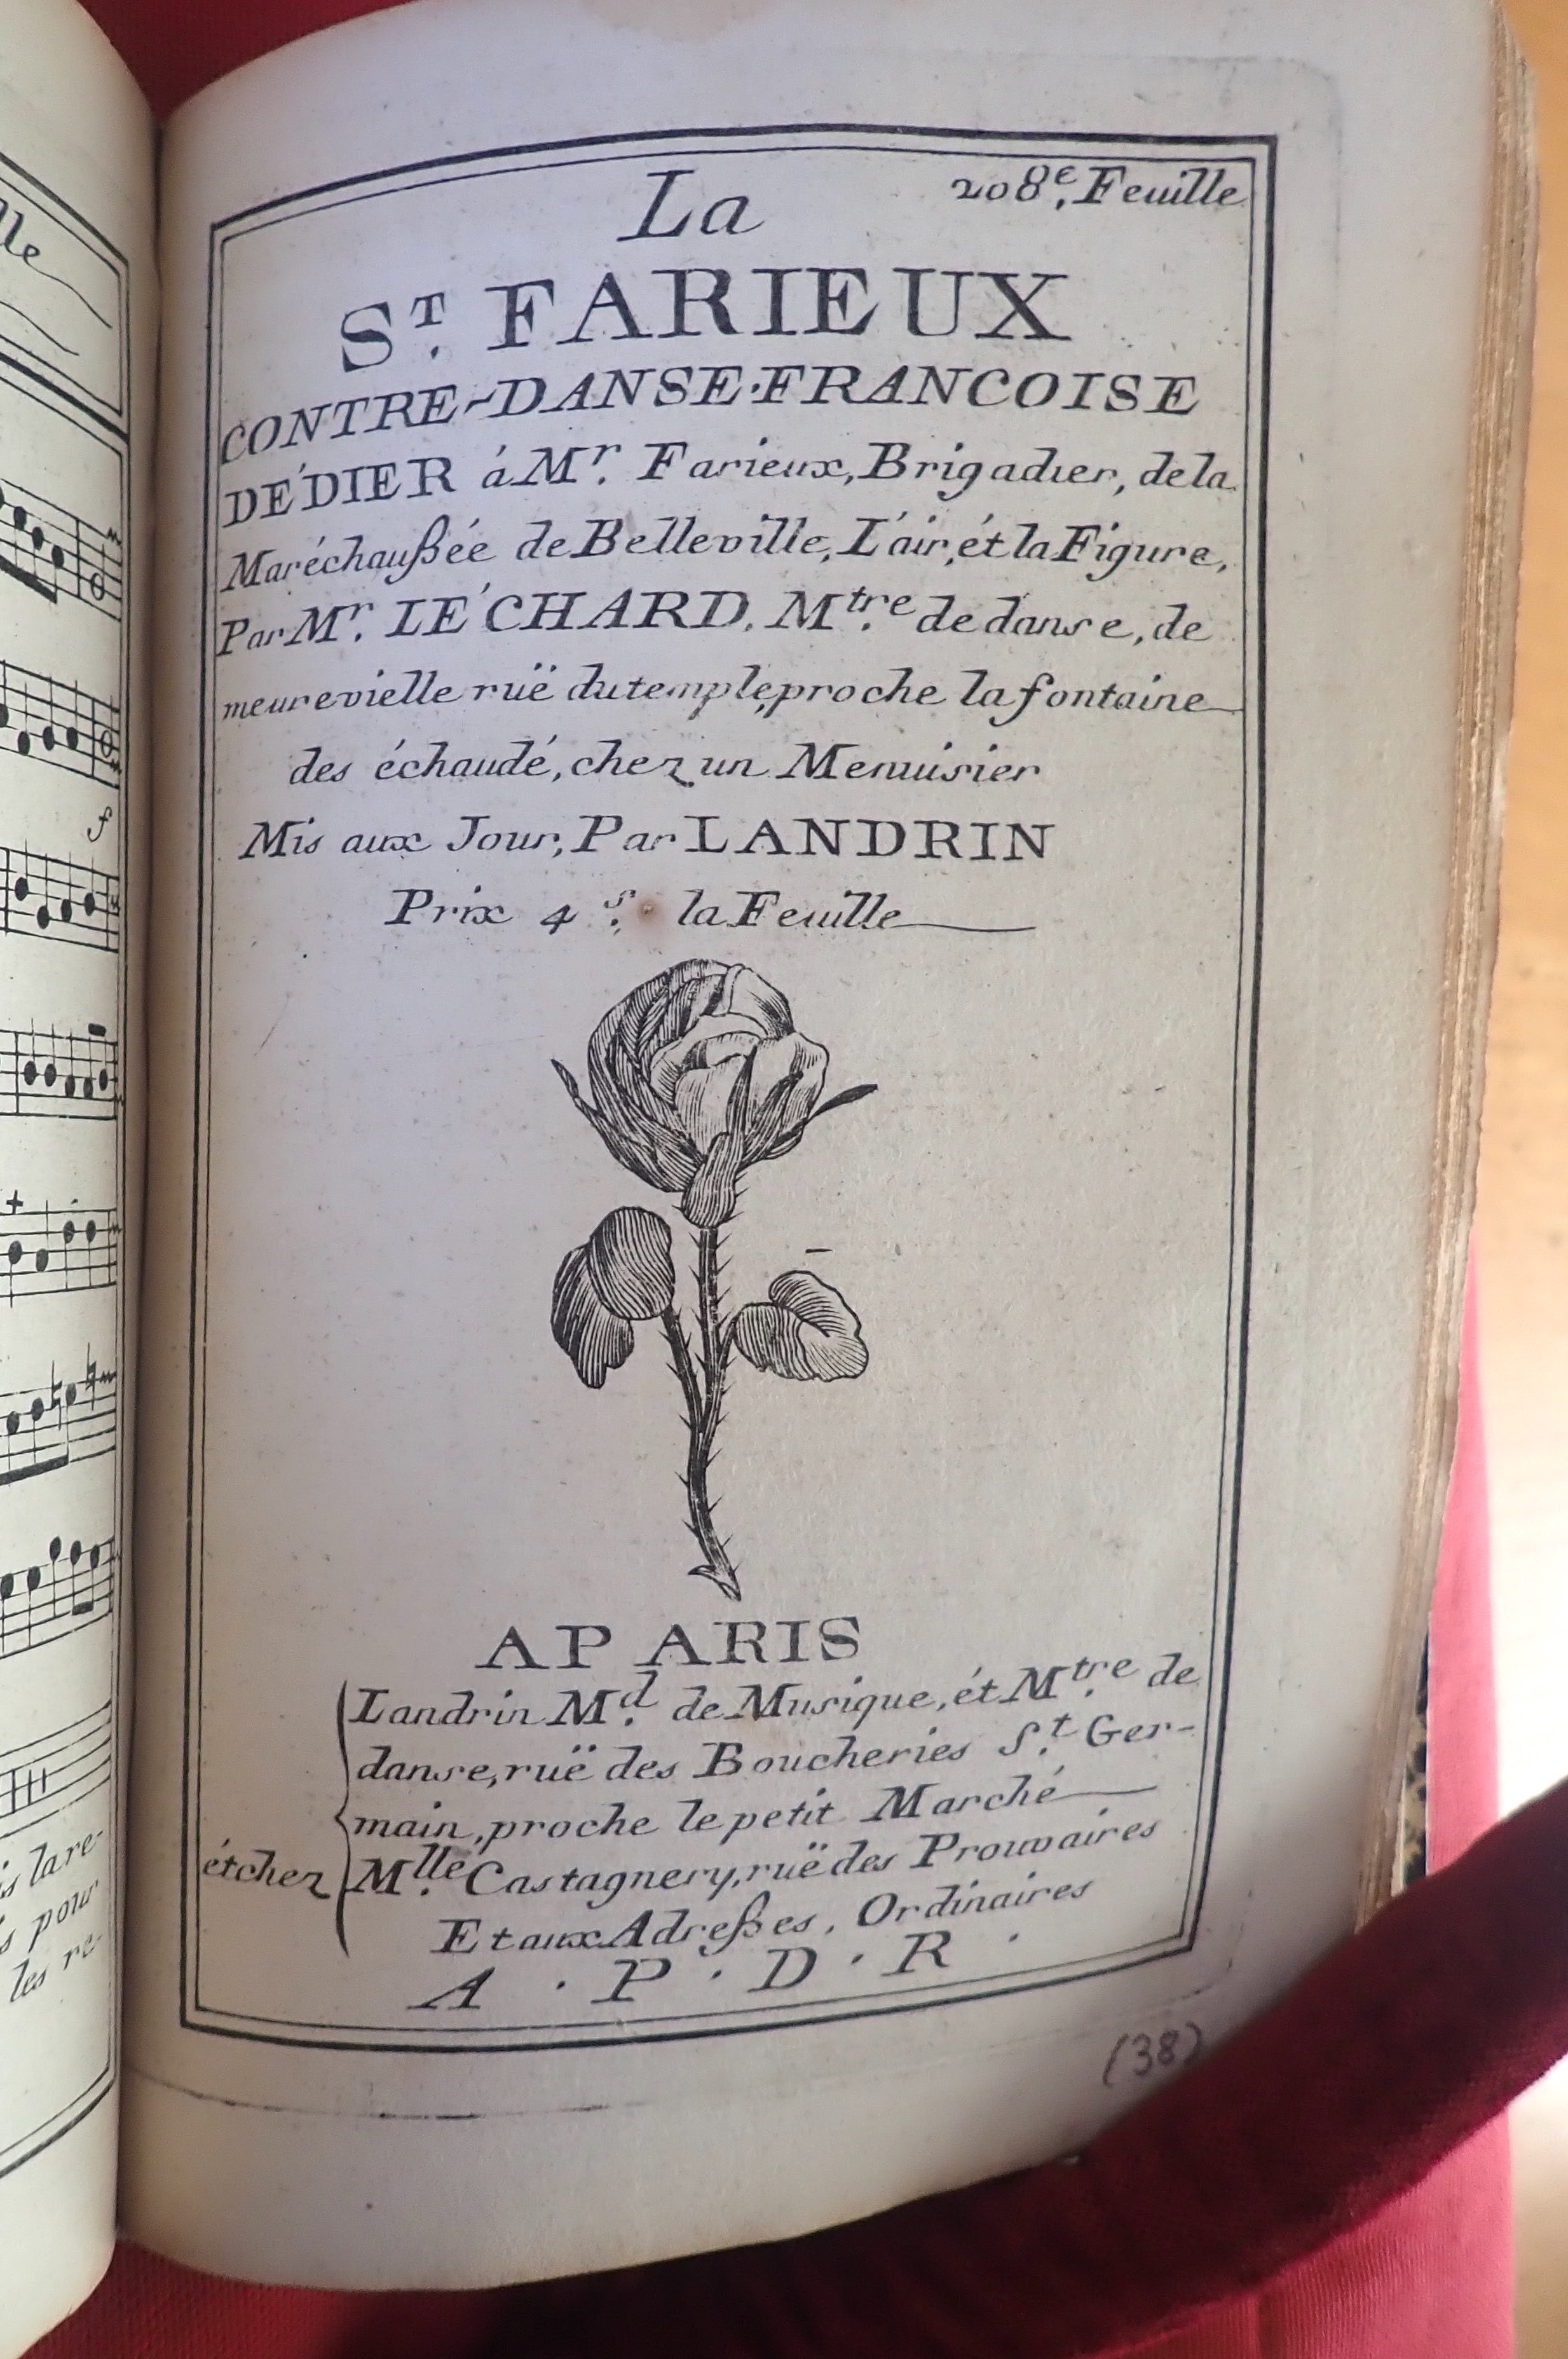 lle
f
is lare-
s pour
les re-
208.e Feuille
La
S.T FARIEUX
CONTRE-DANSE·FRANCOISE
DÉDIER á M.r Farieux, Brigadier, de la
Maréchaußée de Belleville, L'air, ét la Figure,
Par M.r LÉCHARD, M.tre de danse, de
meure vielle ruë du temple, proche la fontaine
des échaudé, chez un Menuisier
Mis aux Jour, Par LANDRIN
Prix 4 s. la Feuille
A PARIS
Landrin M.d de Musique, ét M.tre de
danse, ruë des Boucheries S.t Ger-
main, proche le petit Marché
ét chez M.lle Castagnery, ruë des Prouvaires
Et aux Adreßes, Ordinaires
A · P · D · R ·
(38)